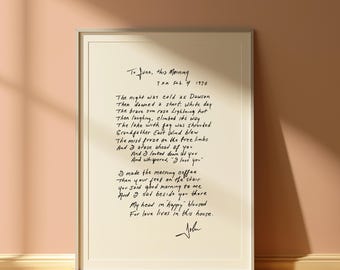 To June, this Morning
7 A.M. Feb. 9 1970
The night was cold as Dawson
Then dawned a short white day
The brave sun rose lightning hot
Then laughing, climbed the way
The lake with fog was shrouded
Grandfather East Wind blew
The mist froze on the tree limbs
And I rose ahead of you
And I looked down at you
And whispered "I love you"
I made the morning coffee
Then your feet on the stair
You said good morning to me
And I sat beside you there
My head in happy
For love lives in this house.
John